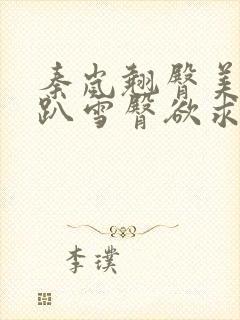 秦岚翘臀美
趴雪臀欲求
李璞